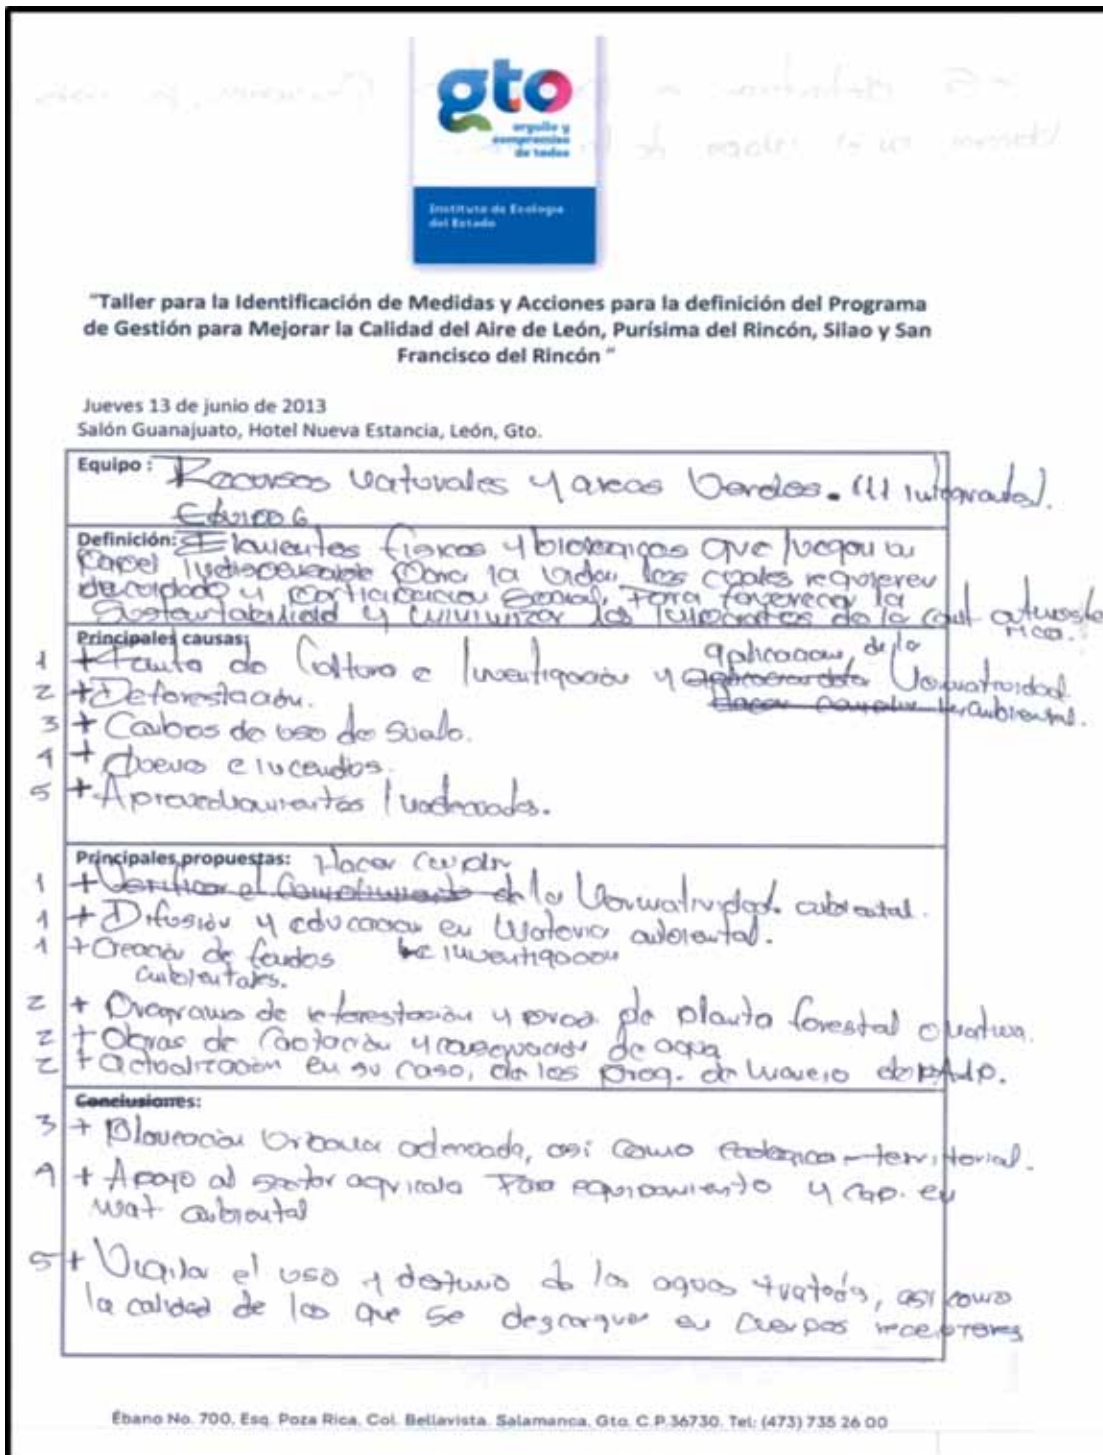 gto
orgullo y
compromiso
de todos
Instituto de Ecología
del Estado
"Taller para la Identificación de Medidas y Acciones para la definición del Programa
de Gestión para Mejorar la Calidad del Aire de León, Purísima del Rincón, Silao y San
Francisco del Rincón "
Jueves 13 de junio de 2013
Salón Guanajuato, Hotel Nueva Estancia, León, Gto.
Equipo : Recursos Naturales y areas Verdes. (11 integrantes).
Equipo 6
Definición: Elementos físicos y biológicos que juegan un
papel indispensable para la vida, los cuales requieren
de cuidado y participación social, para favorecer la
sustentabilidad y minimizar los impactos de la cont. atmosfe
rica.
Principales causas:
aplicacion de la
1 + Falta de Cultura e Investigación y Normatividad
2 + Deforestación. ambiental.
3 + Cambios de uso de suelo.
4 + Quema e incendios.
5 + Aprovechamientos Inadecuados.
Principales propuestas: Hacer cumplir
1 + Verificar el Cumplimiento de la Normatividad ambiental.
1 + Difusión y educacion en Materia ambiental.
1 + Creación de fondos investigacion
ambientales.
2 + Programa de reforestación y prod. de planta forestal nativa.
2 + Obras de Captación y de agua
2 + actualización en su caso, de los prog. de manejo
Conclusiones:
3 + Planeación Urbana ordenada, así como ecologica-territorial.
4 + Apoyo al sector agricola Para equipamiento y cap. en
mat ambiental
5 + Vigilar el uso y destino de las aguas tratadas, así como
la calidad de las que se descargan en cuerpos receptores
Ébano No. 700, Esq. Poza Rica, Col. Bellavista. Salamanca, Gto. C.P.36730, Tel: (473) 735 26 00